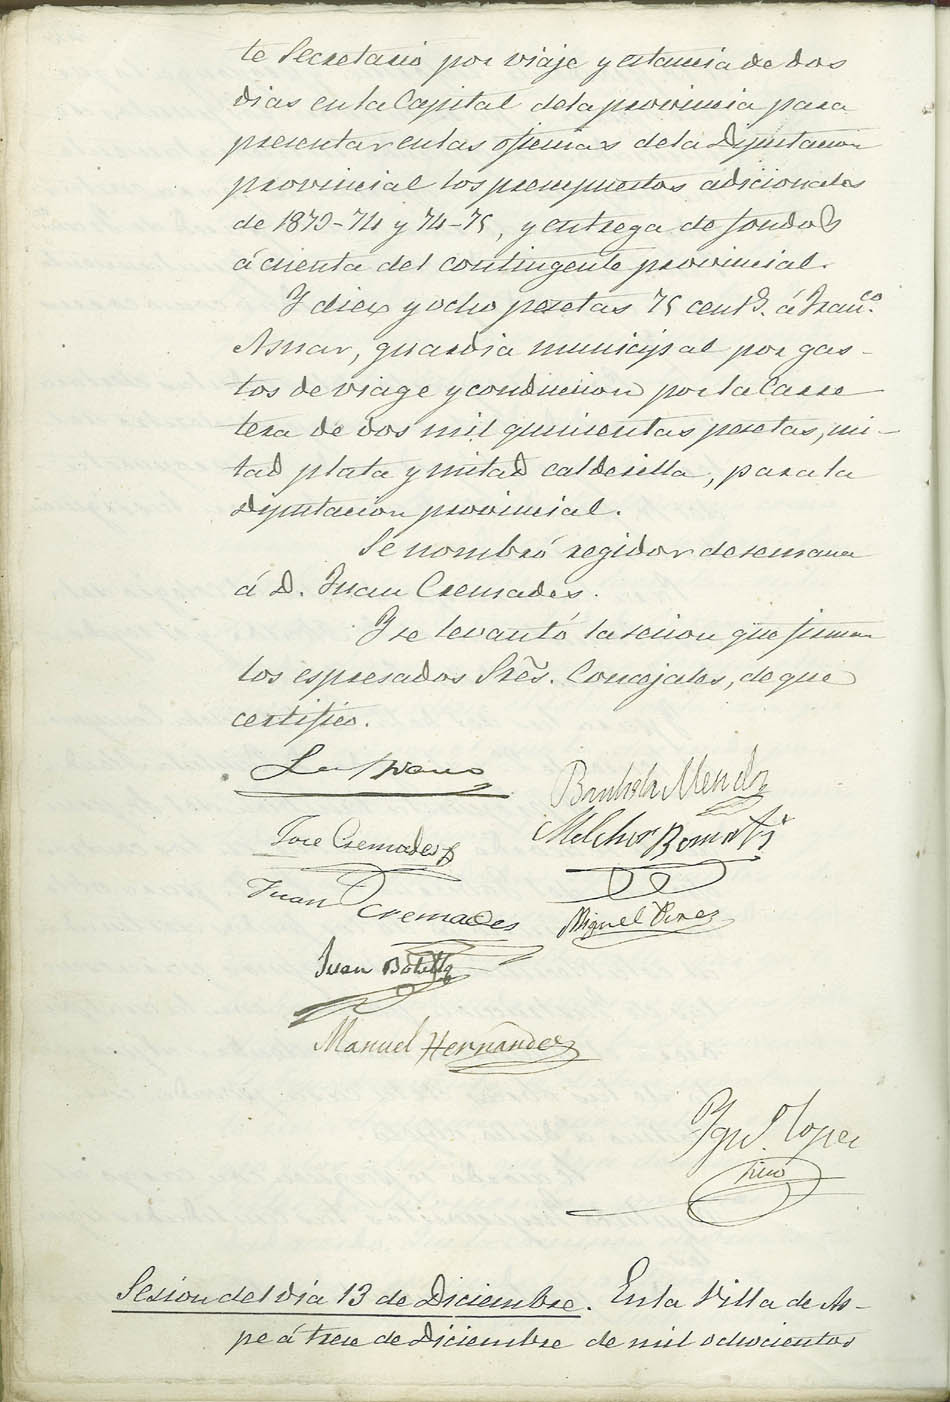 te Secretario por viaje y estancia de dos
dias en la Capital de la provincia para
presentar en las oficinas de la Diputacion
provincial los presupuestos adicionales
de 1873-74 y 74-75, y entrega de fondos
á cuenta del contingente provincial.
Y diez y ocho pesetas 75 cents. á Franco.
Asnar, guardia municipal por gas-
tos de viage y conduccion por la Carre
tera de dos mil quinientas pesetas, mi-
tad plata y mitad calderilla, para la
Diputacion provincial.
Se nombró regidor de semana
á D. Juan Cremades.
Y se levantó la sesion que firman
los espresados Sres. Concejales, de que
certifico.
Bautista
Jose Cremades
Melchor
Juan Cremades
Miguel
Juan Botella
Manuel Hernandez
Lopez
Srio
Sesion del dia 13 de Diciembre. En la Villa de As-
pe á trece de Diciembre de mil ochocientos